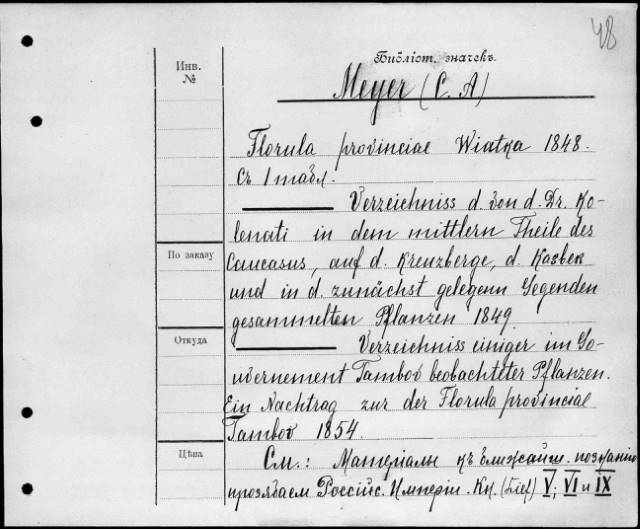 48
Библіот. значекъ.
Инв.
№
Meyer (C. A)
Florula provinciae Wiatka 1848.
Съ 1 табл.
Verzeichniss d. von d. Dr. Ko-
lenati in dem mittlern Theile des
По заказу
Caucasus, auf d. Kreuzberge, d. Kasbek
und in d. zunächst gelegenn Gegenden
gesammelten Pflanzen 1849.
Откуда
Verzeichniss einiger im Go-
uvernement Tambov beobachteter Pflanzen.
Ein Nachtrag zur der Florula provinciae
Tambov 1854.
Цѣна
См.: Матеріалы къ ближайш. познанію
прозябаем. Россійс. Имперіи. Кн. V; VI и IX